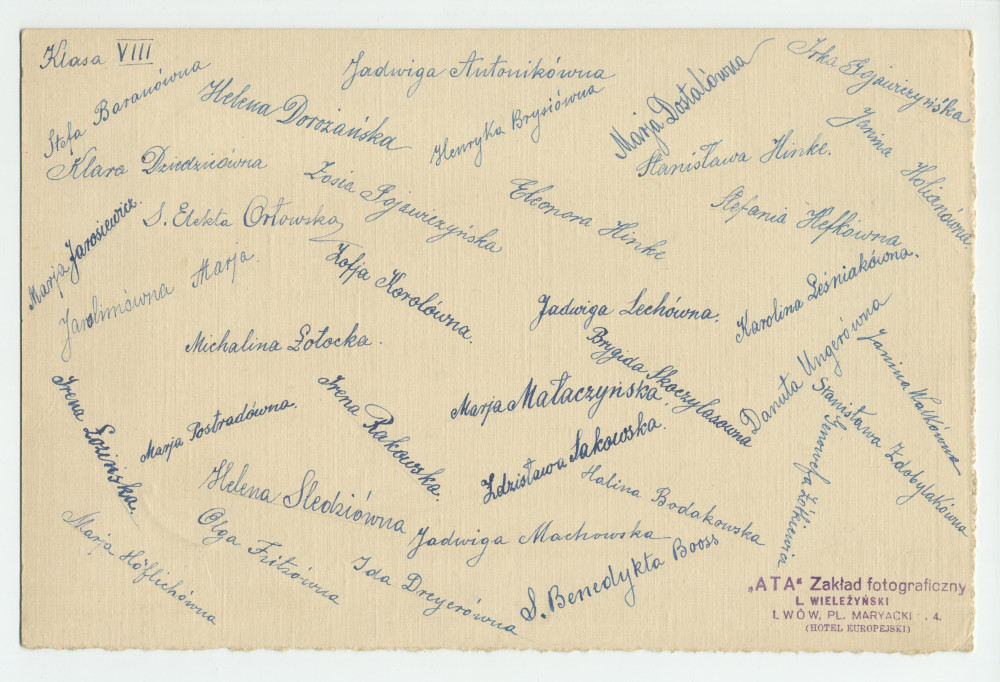 Klasa VIII
Stefa Baranówna
Jadwiga Antonikówna
Irka Gojawiczyńska
Helena Dorożańska
Henryka Brysiówna
Marja Dostalówna
Janina Holianówna.
Klara Dziedzicówna
Zosia Gojawiczyńska
Stanisława Hinke.
Eleonora Hinke
Stefania Hefkówna
Marja Jarosiewicz.
S. Elekta Orłowska
Jarolimówna Marja.
Zofja Korolówna.
Jadwiga Lechówna.
Karolina Leśniakówna.
Michalina Łotocka.
Brygida Skoczylasowna
Danuta Ungerówna
Janina Walkówna
Irena Łozińska.
Marja Postradówna.
Irena Rakowska.
Marja Mataczyńska.
Stanisława Zdobylakówna
Zdzisława Sakowska.
Genowefa Żółkiewia
Helena Sledziówna
Halina Bodakowska
Marja Höflichówna
Olga Fritzówna
Jadwiga Machowska
Ida Dreyerówna
S. Benedykta Booss
„ATA" Zakład fotograficzny
L. WIELEŻYŃSKI
LWÓW, PL. MARYACKI . 4.
(HOTEL EUROPEJSKI)